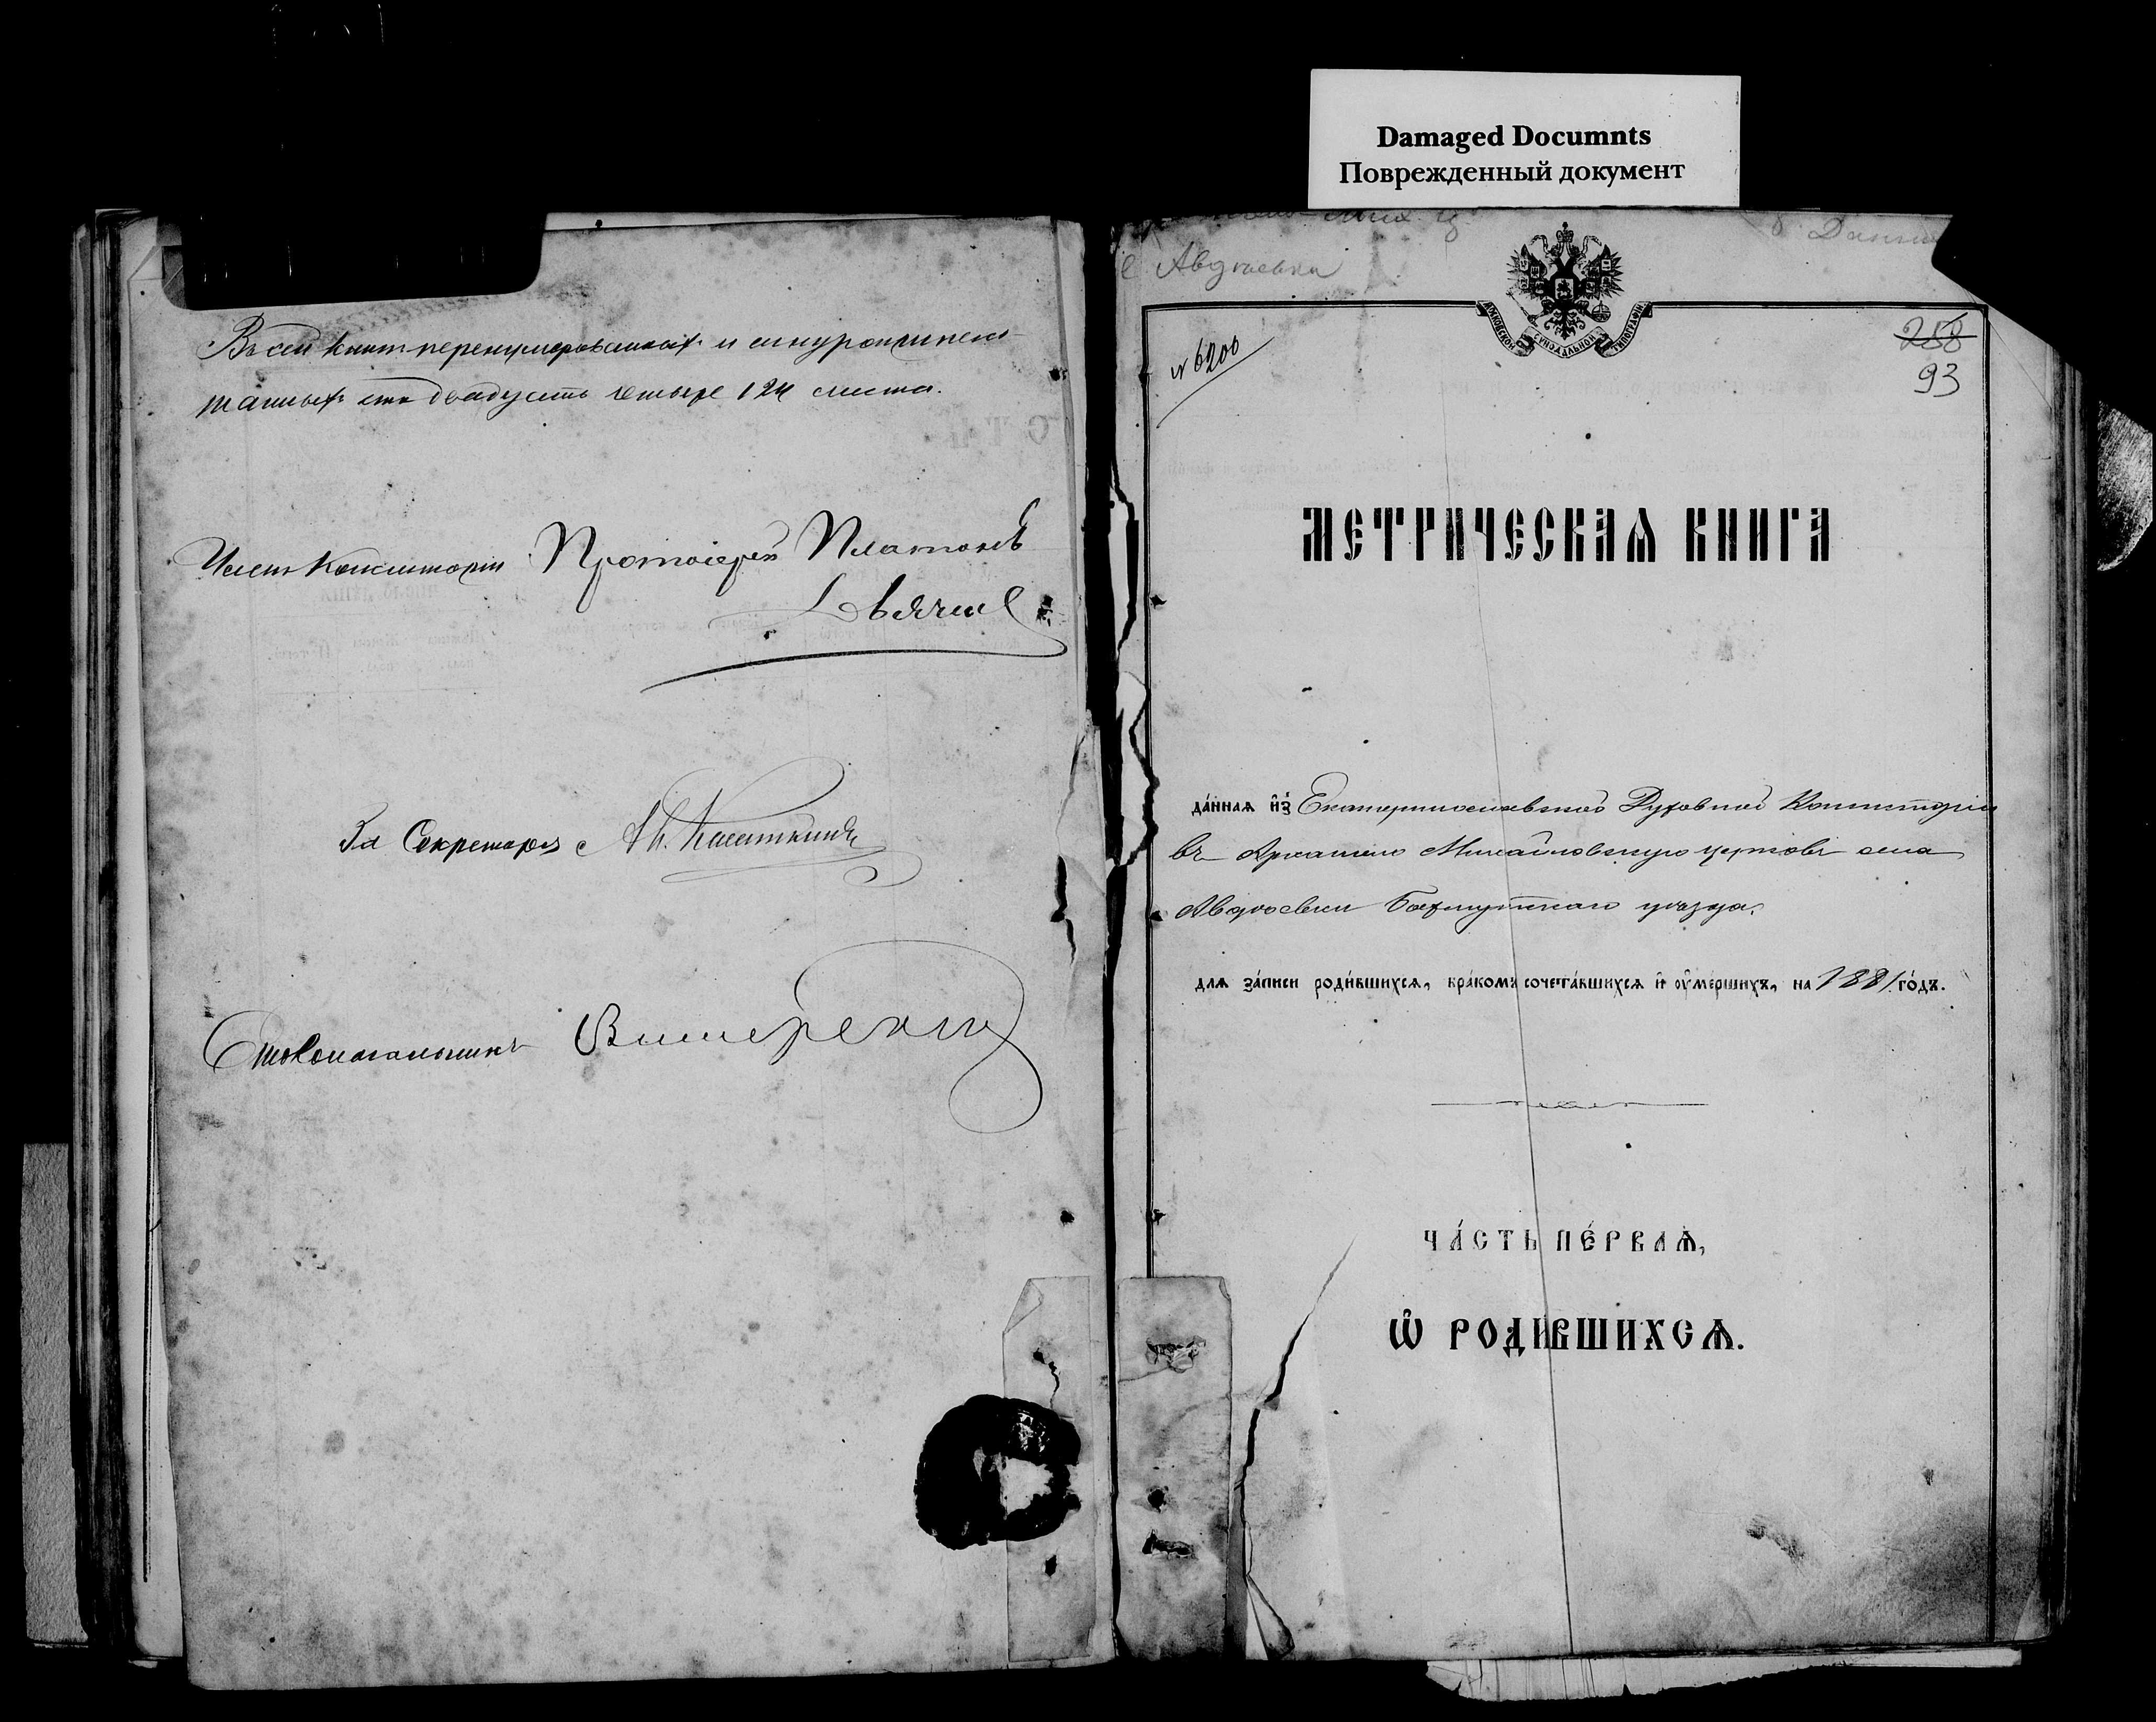 Damaged Documnts
Поврежденный документ
Въ сей книгѣ перенумерованныхъ и шнуроприпеча-
танныхъ сто двадцать четыре 124 листа.
Членъ Консисторіи Протоіерей Платонъ
За Секретаря
Столоначальникъ
с Авдѣевки
МОСКОВСКОЙ СУНОДАЛЬНОЙ ТИПОГРАФІИ
№ 6200
258
93
МЕТРИЧЕСКАѦ КНИГА
да́ннаѧ и҆з̾ Екатеринославской Духовной Консисторіи
въ Архангело Михайловскую церковь села
Авдѣевки Бахмутскаго уѣзда.
длѧ за́писи роди́вшихсѧ, бра́комъ сочета́вшихсѧ и҆ ᲂу҆ме́ршихъ, на 1881 го́дъ.
ЧА́СТЬ ПЕ́РВАѦ,
Ѽ РОДИ́ВШИХСѦ.